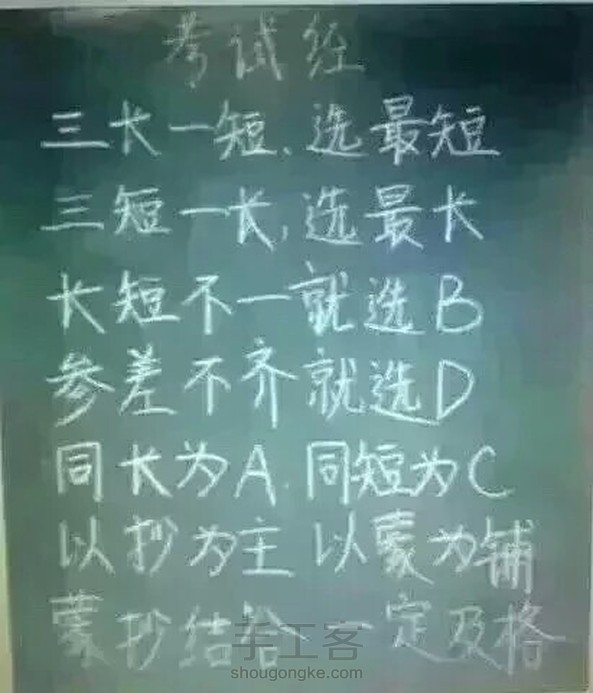 考试经
三长一短、选最短
三短一长,选最长
长短不一就选B
参差不齐就选D
同长为A.同短为C
以抄为主 以蒙为铺
蒙抄结合 一定及格
手工客
shougongke.com